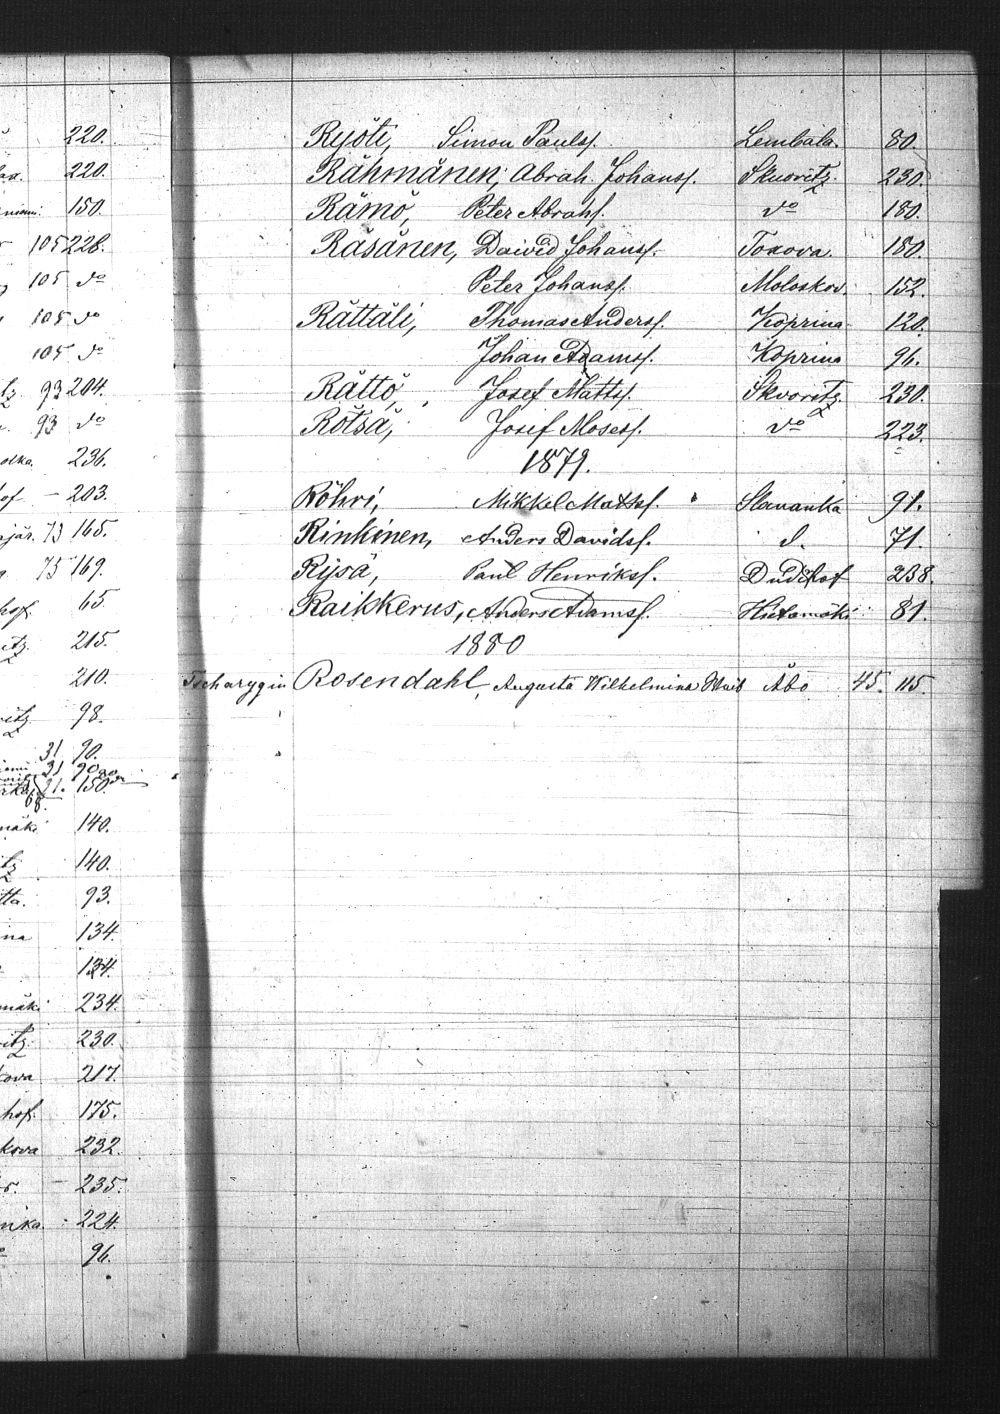 220.
220.
150.
105 228.
105 do
105 do
105 do
93 204.
93 do
236.
203.
73 165.
75 169.
65.
215.
210.
98.
31 90.
31 90
150
140.
140.
93.
134.
134.
234.
230.
217.
hof. 175.
kova 232.
235.
224.
96.
Ryöti, Simon Paulsf. Lembala. 80.
Rähmänen, Abrah. Johansf. Skuoritz. 230.
Rämö, Peter Abrahf. do 180.
Räsänen, Dawid Johansf. Toxova. 180.
Peter Johansf. Moloskov. 152.
Rättäli, Thomas Andersf. Koprina 120.
Johan Adamsf. Koprina 96.
Rättö, Josef Mattsf. Skvoritz. 230.
Rötsä, Josif Mosesf. do 223.
1879.
Röhri, Mikkel Mattsf. Slavanka 91.
Rinkinen, Anders Davidsf. d. 71.
Rysä, Paul Henriksf. Dudehof 238.
Raikkerus, Anders Adamsf. Hietamäki 81.
1880
Tscharygin Rosendahl, Augusta Wilhelmina Åbo 45. 115.